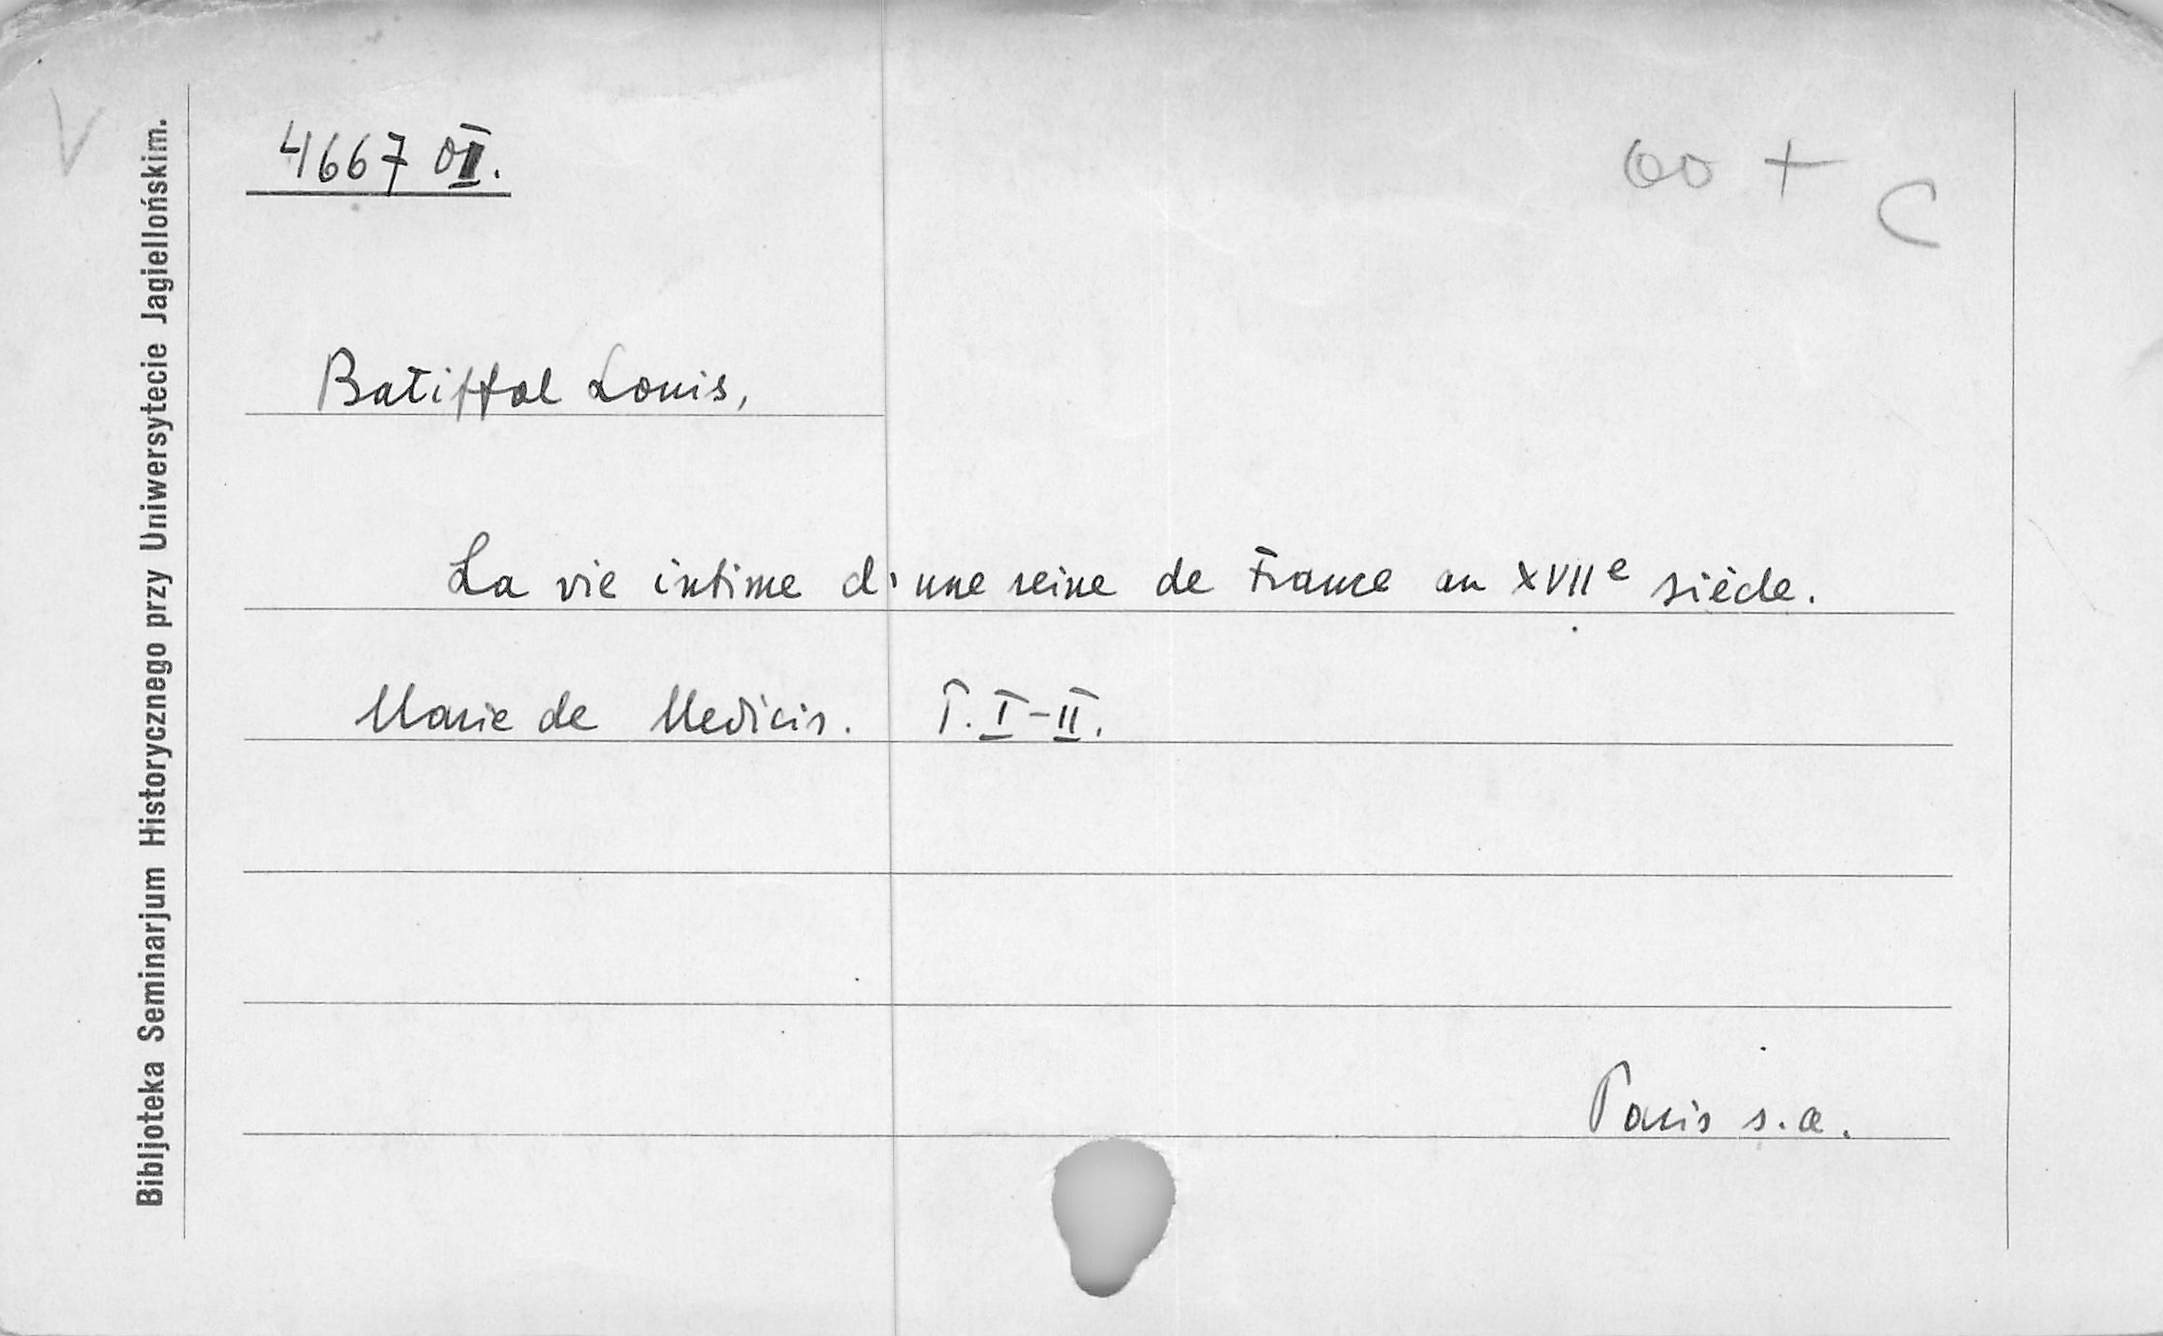 V
Bibljoteka Seminarjum Historycznego przy Uniwersytecie Jagiellońskim.
4667
+ C
Batiffol Louis,
La vie intime d'une reine de France au XVIIe siècle.
Marie de Medicis. T. I-II.
Paris s.a.